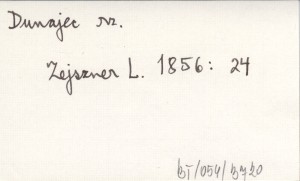 Dunajec rz.
Zejszner L. 1856: 24
BT/054/B720